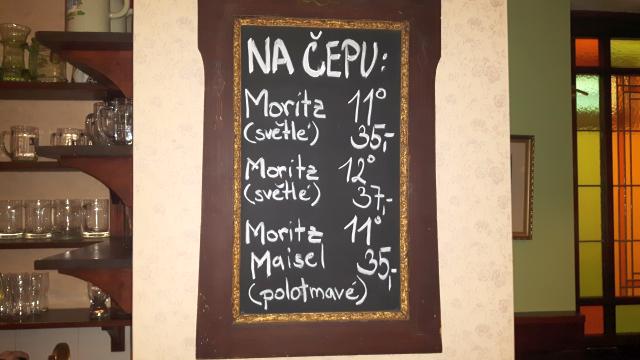 NA ČEPU:
Moritz 11°
(světlé) 35,-
Moritz 12°
(světlé) 37,-
Moritz 11°
Maisel 35,-
(polotmavé)